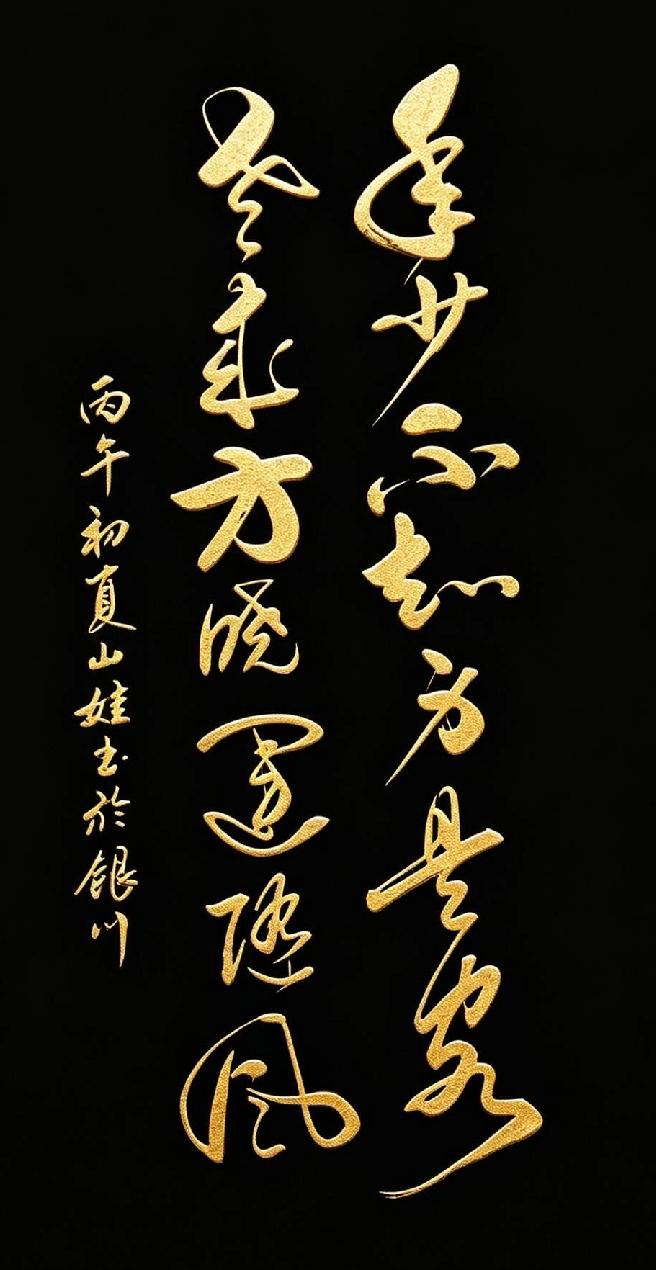 年少不知身是客
老来方晓運随风
丙午初夏山娃书於银川